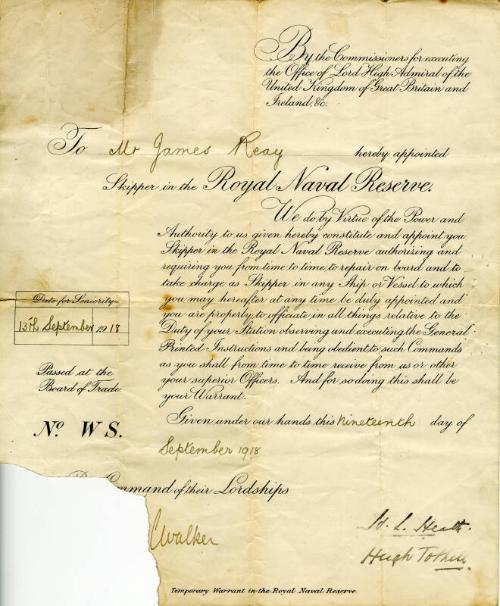 By the Commissioners for executing
the Office of Lord High Admiral of the
United Kingdom of Great Britain and
Ireland, &c.
To Mr James Reay hereby appointed
Skipper in the Royal Naval Reserve.
We do by Virtue of the Power and
Authority to us given hereby constitute and appoint you
Skipper in the Royal Naval Reserve authorising and
requiring you from time to time to repair on board and to
take charge as Skipper in any Ship or Vessel to which
you may hereafter at any time be duly appointed and
you are properly to officiate in all things relative to the
Duty of your Station observing and executing the General
Printed Instructions and being obedient to such Commands
as you shall from time to time receive from us or other
your superior Officers. And for so doing this shall be
your Warrant.
Date for Seniority
13th September 1918
Passed at the
Board of Trade
No. W S.
Given under our hands this Nineteenth day of
September 1918
Command of their Lordships
C Walker
H. L. Heath.
Hugh
Temporary Warrant in the Royal Naval Reserve.